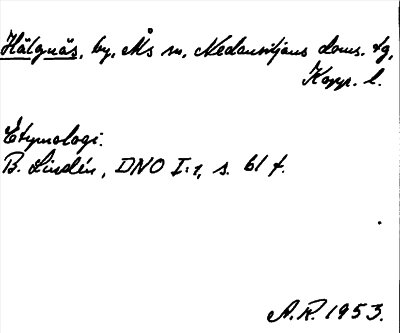 Hälgnäs, by, Ås sn, Nedansiljans doms. tg,
Kopp. l.
Etymologi.
B. Lindén, DNO I:1, s. 61 f.
A.R. 1953.